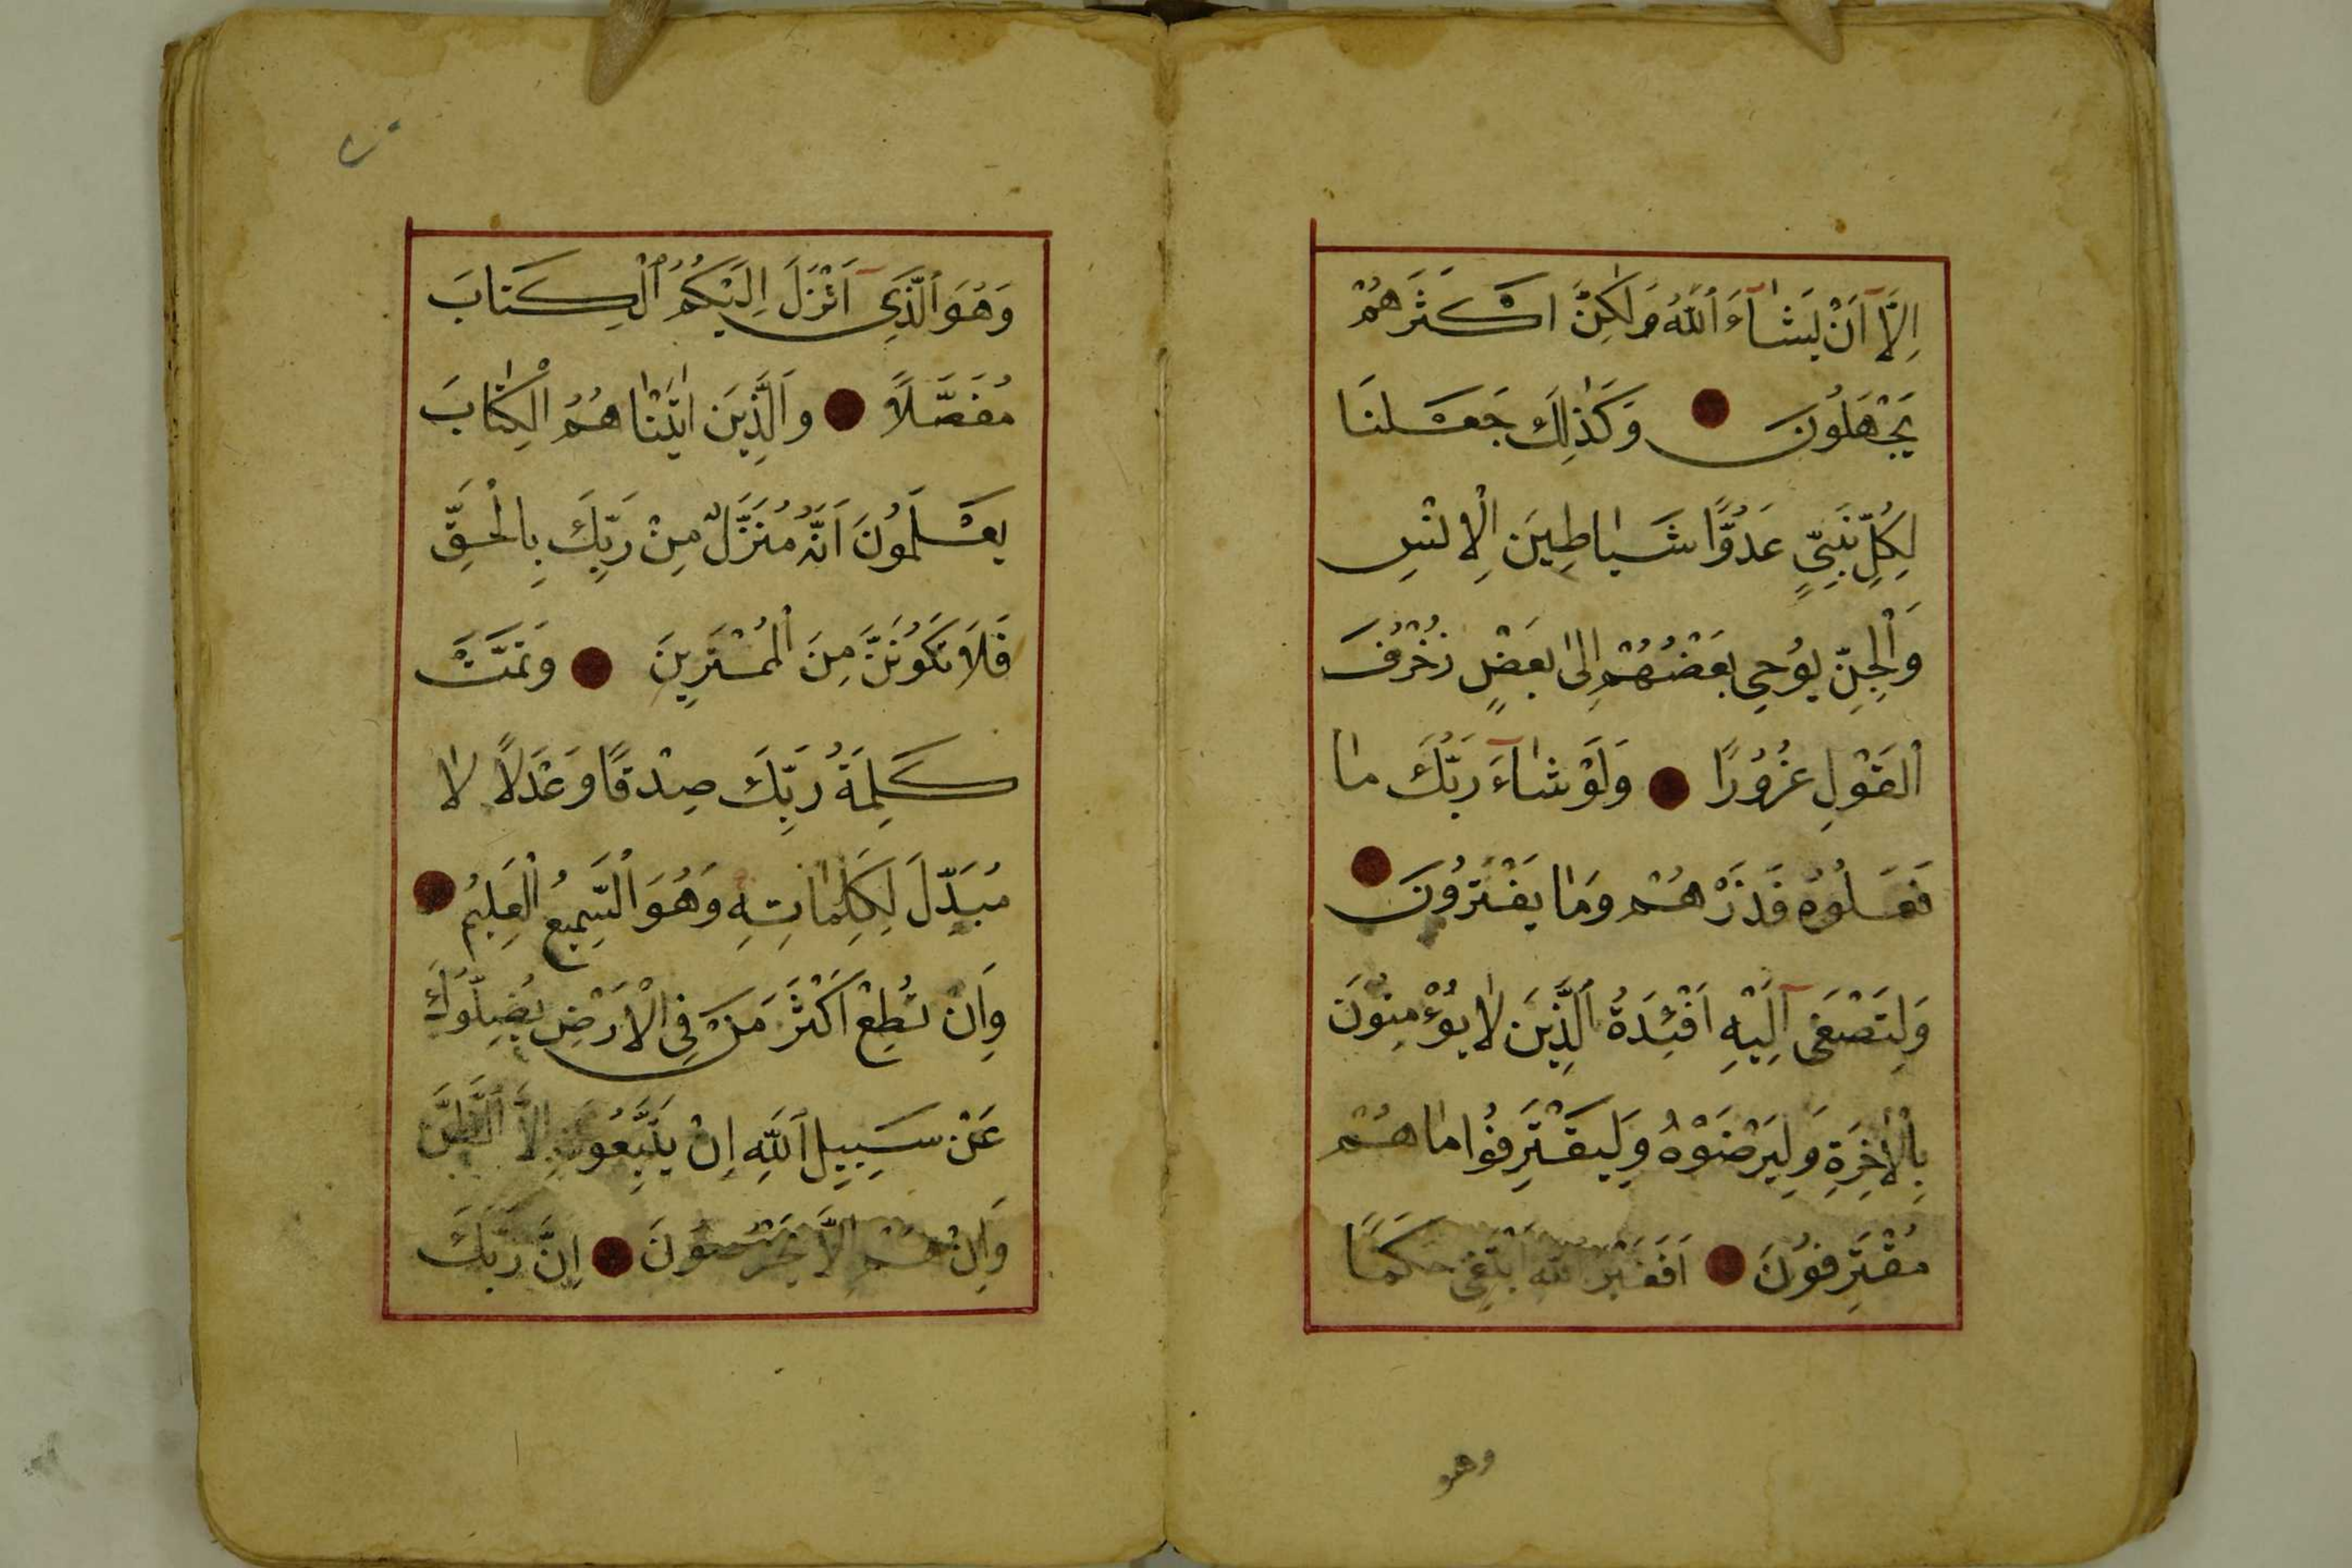 اِلَّآ اَنْ يَشٰآءَ ٱللّٰهُ وَلٰكِنَّ اَكْثَرَهُمْ
يَجْهَلُونَ وَكَذٰلِكَ جَعَلْنَا
لِكُلِّ نَبِيٍّ عَدُوًّا شَيٰاطِينَ الْاِنْسِ
وَالْجِنِّ يُوْحِي بَعْضُهُمْ اِلىٰ بَعْضٍ زُخْرُفَ
ٱلْقَوْلِ غُرُوْرًا وَلَوْ شٰآءَ رَبُّكَ مٰا
فَعَلُوْهُ فَذَرْهُمْ وَمٰا يَفْتَرُوْنَ
وَلِتَصْغَىٓ اِلَيْهِ اَفْئِدَةُ ٱلَّذِيْنَ لٰا يُؤْمِنُوْنَ
بِالْاٰخِرَةِ وَلِيَرْضَوْهُ وَلِيَقْتَرِفُوْا مٰا هُمْ
مُقْتَرِفُوْنَ اَفَغَيْرَ ٱللّٰهِ اَبْتَغِي حَكَمًا
وهو
وَهُوَ ٱلَّذِيٓ اَنْزَلَ اِلَيْكُمُ ٱلْكِتَابَ
مُفَصَّلًا وَالَّذِيْنَ اٰتَيْنٰاهُمُ الْكِتٰابَ
يَعْلَمُوْنَ اَنَّهُ مُنَزَّلٌ مِنْ رَبِّكَ بِالْحَقِّ
فَلَا تَكُوْنَنَّ مِنَ الْمُمْتَرِيْنَ وَتَمَّتْ
كَلِمَةُ رَبِّكَ صِدْقًا وَعَدْلًا لٰا
مُبَدِّلَ لِكَلِمٰاتِهِ وَهُوَ ٱلسَّمِيْعُ الْعَلِيْمُ
وَاِنْ تُطِعْ اَكْثَرَ مَنْ فِي الْاَرْضِ يُضِلُّوْكَ
عَنْ سَبِيْلِ ٱللّٰهِ اِنْ يَتَّبِعُوْنَ اِلَّا ٱلظَّنَّ
وَاِنْ هُمْ اِلَّا يَخْرُصُوْنَ اِنَّ رَبَّكَ